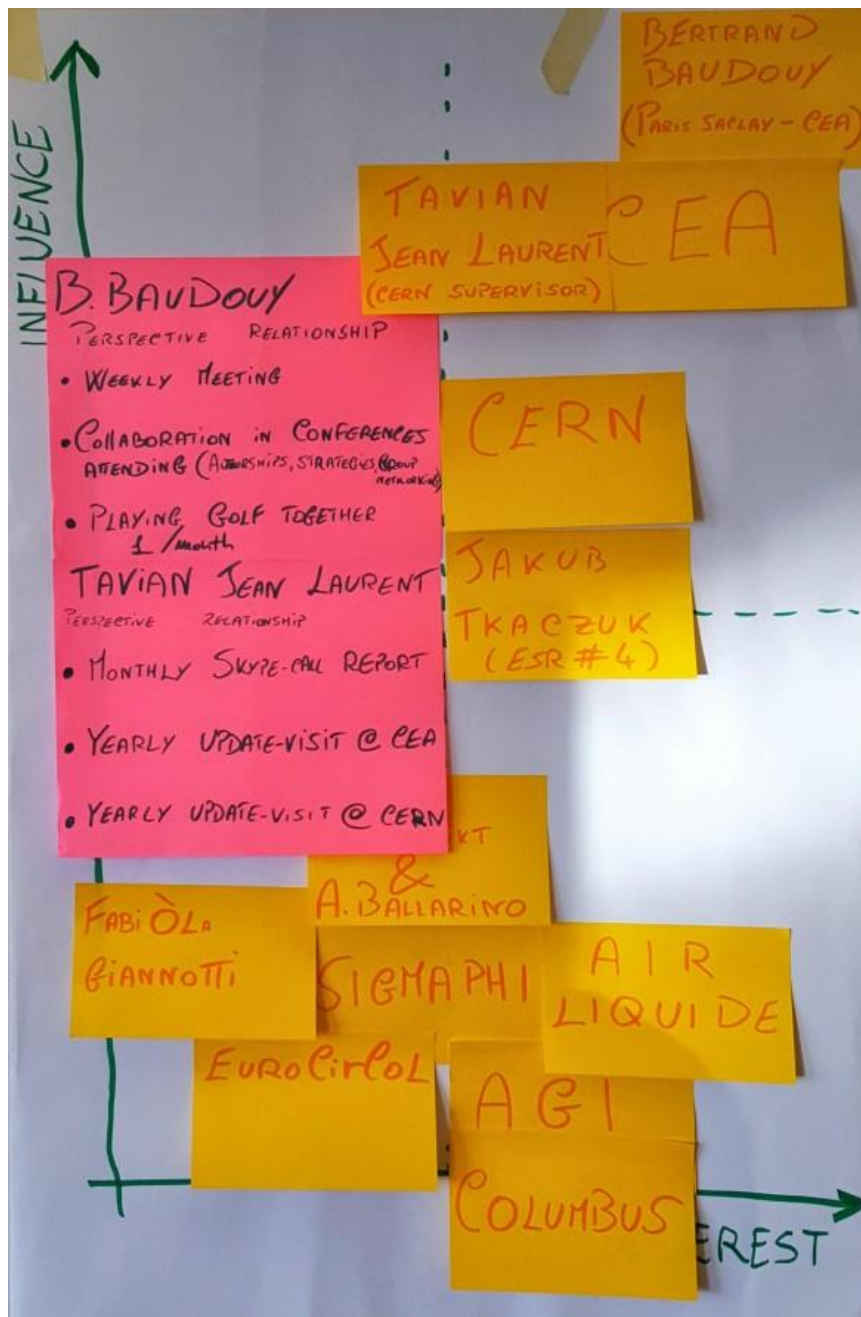 INFLUENCE
BERTRAND
BAUDOUY
(PARIS SACLAY - CEA)
TAVIAN
JEAN LAURENT
(CERN SUPERVISOR)
CEA
B. BAUDOUY
PERSPECTIVE RELATIONSHIP
• WEEKLY MEETING
• COLLABORATION IN CONFERENCES
ATTENDING (AUTHORSHIPS, STRATEGIES, GROUP
NETWORKING)
• PLAYING GOLF TOGETHER
1 /month
TAVIAN JEAN LAURENT
PERSPECTIVE RELATIONSHIP
• MONTHLY SKYPE-CALL REPORT
• YEARLY UPDATE-VISIT @ CEA
• YEARLY UPDATE-VISIT @ CERN
CERN
JAKUB
TKACZUK
(ESR #4)
KT
&
A. BALLARINO
FABIÒLA
GIANNOTTI
SIGMAPHI
AIR
LIQUIDE
EUROCIRCOL
AGI
COLUMBUS
EREST